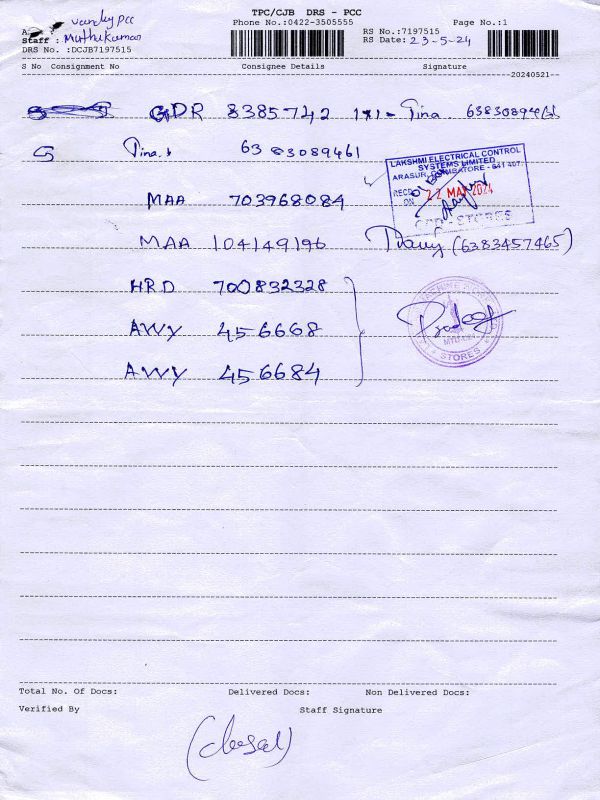 TPC/CJB DRS - PCC
Phone No.:0422-3505555
Page No.:1
Vandy PCC
Staff : Muthukumar
RS No.:7197515
RS Date: 23-5-24
DRS No. :DCJB7197515
S No Consignment No Consignee Details Signature
20240521
GDR 8385742 1x1- Tina.
Tina. 6383089461
LAKSHMI ELECTRICAL CONTROL
SYSTEMS LIMITED
ARASUR, COIMBATORE - 641 407.
RECD
ON 22 MAY 2024
STORES
MAA 703968084
MAA 104149196 (6383457465)
HRD 700832328
AWY 456668
AWY 456684
STORES
Total No. Of Docs: Delivered Docs: Non Delivered Docs:
Verified By Staff Signature